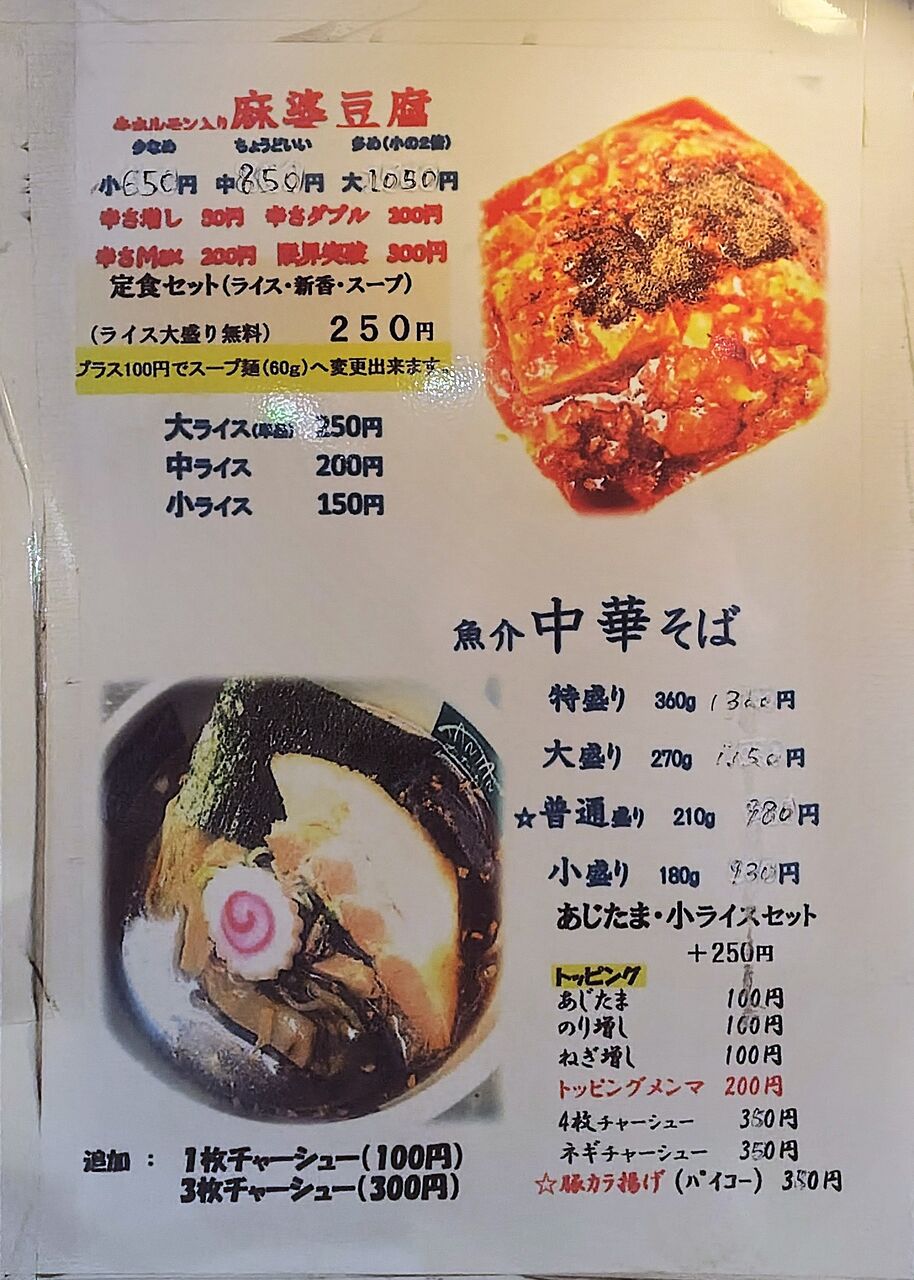 牛ホルモン入り麻婆豆腐
少なめ ちょうどいい 多め(小の2倍)
小650円 中850円 大1050円
辛さ増し 50円 辛さダブル 100円
辛さMax 200円 限界突破 300円
定食セット(ライス・新香・スープ)
(ライス大盛り無料) 250円
プラス100円でスープ麺(60g)へ変更出来ます。
大ライス(単品) 250円
中ライス 200円
小ライス 150円
魚介 中華そば
特盛り 360g 円
大盛り 270g 1150円
☆普通盛り 210g 980円
小盛り 180g 930円
あじたま・小ライスセット
+250円
トッピング
あじたま 100円
のり増し 100円
ねぎ増し 100円
トッピングメンマ 200円
4枚チャーシュー 350円
ネギチャーシュー 350円
☆豚カラ揚げ (パイコー) 350円
追加 : 1枚チャーシュー(100円)
3枚チャーシュー(300円)